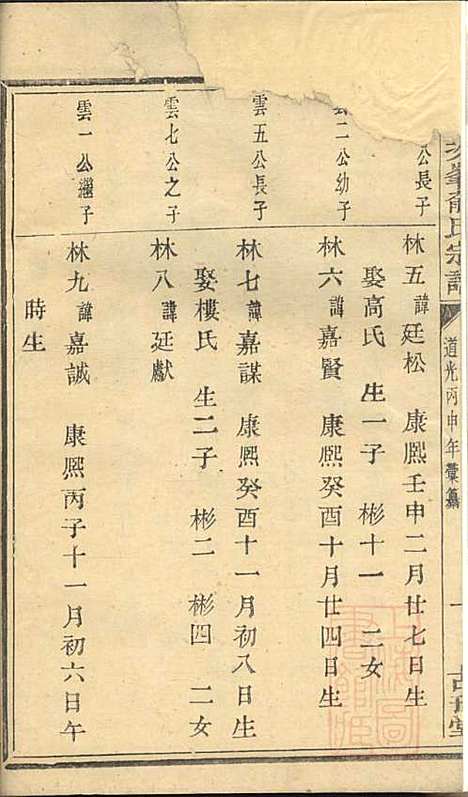 峯俞氏宗譜
道光丙申年彙纂
一
公長子
林五 諱廷松 康熙壬申二月廿七日生
娶高氏 生一子 彬十一 二女
雲二公幼子
林六 諱嘉賢 康熙癸酉十月廿四日生
雲五公長子
林七 諱嘉謀 康熙癸酉十一月初八日生
娶樓氏 生二子 彬二 彬四 二女
雲七公之子
林八 諱廷獻
雲一公繼子
林九 諱嘉誠 康熙丙子十一月初六日午
時生